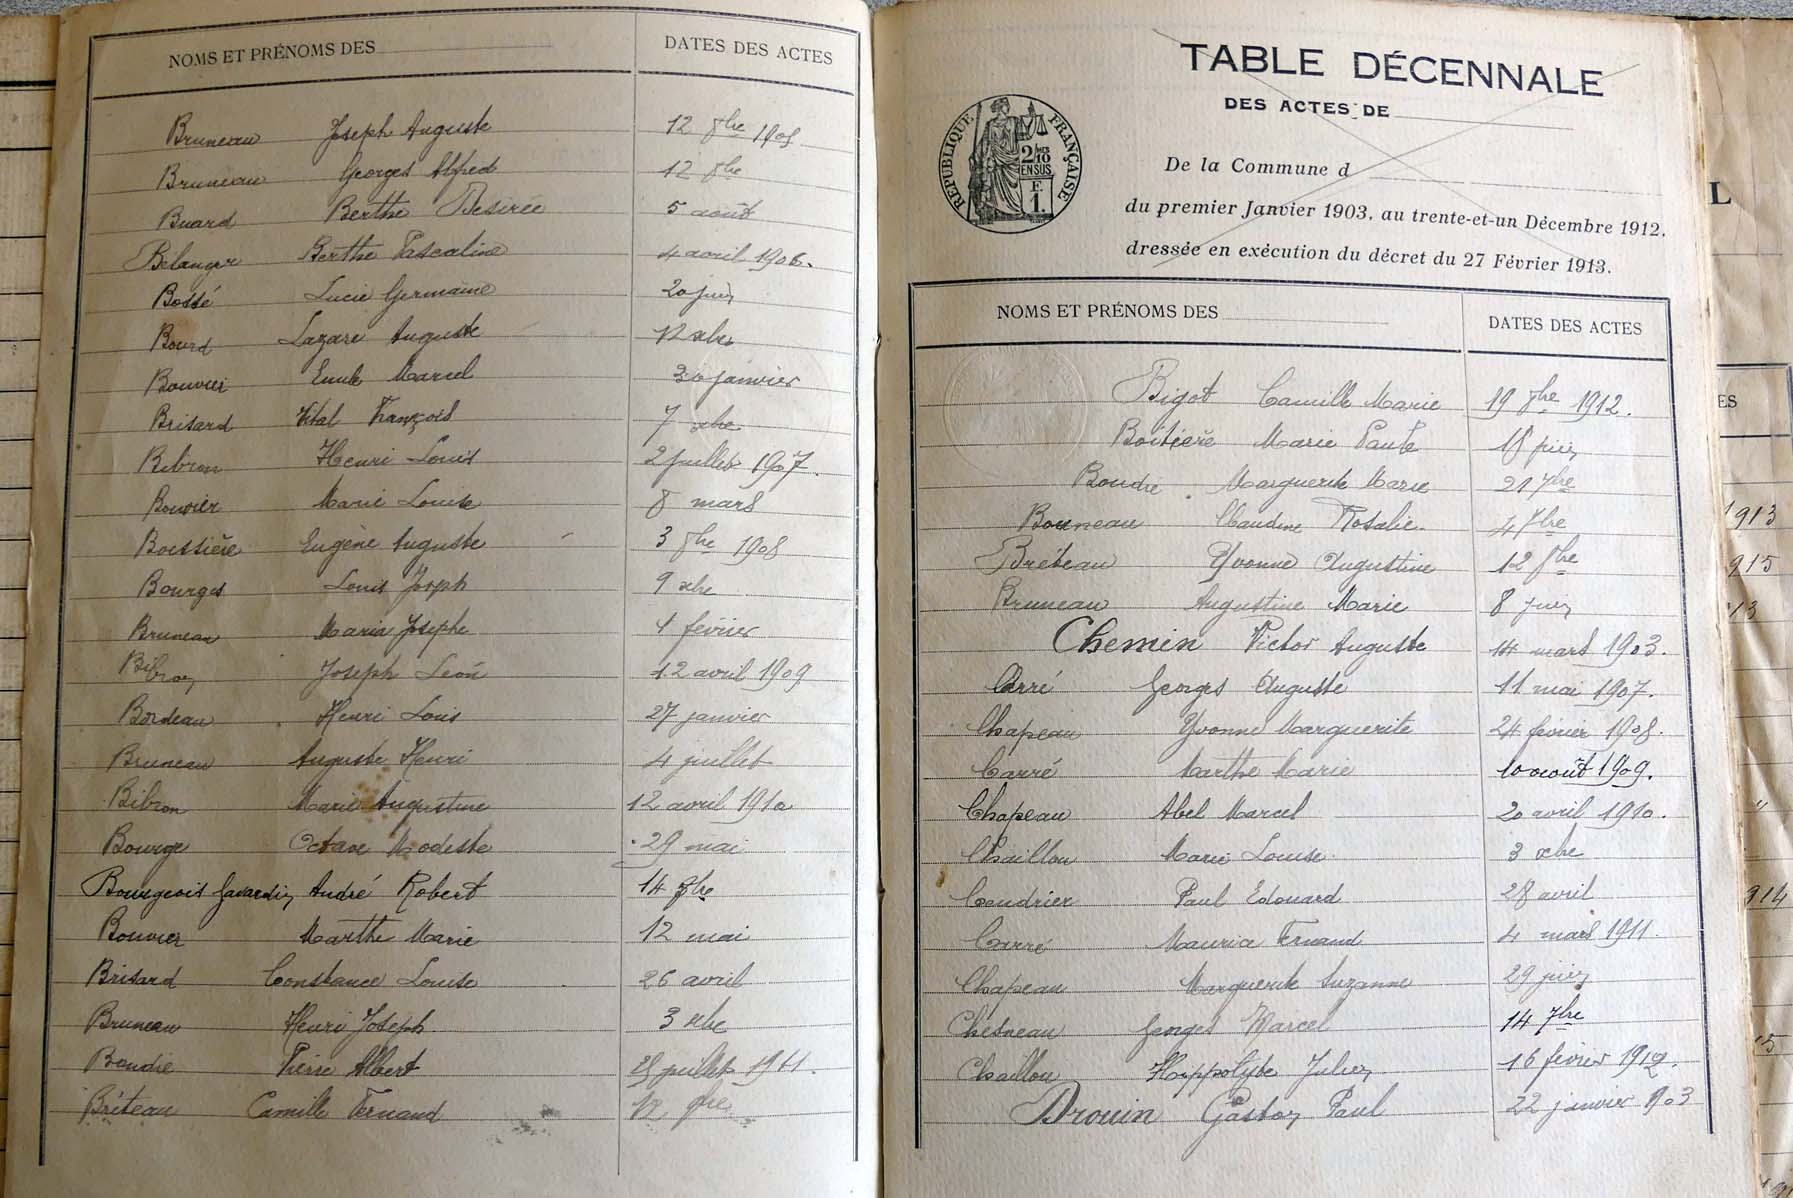 NOMS ET PRÉNOMS DES DATES DES ACTES
Bruneau Joseph Auguste 12 8bre 1905
Bruneau Georges Alfred 12 8bre
Buard Berthe Desirée 5 août
Belanger Berthe Pascaline 4 avril 1906.
Bossé Lucie Germaine 20 juin
Bourd Lazare Auguste 12 xbre
Bouvier Emile Marcel 30 janvier
Brisard Vital François 7 xbre
Bibron Henri Louis 2 juillet 1907.
Bouvier Marie Louise 8 mars
Boissière Eugène Auguste 3 8bre 1908
Bourges Louis Joseph 9 xbre
Bruneau Maria Josephe 4 février
Bibron Joseph Léon 12 avril 1909
Bordeau Henri Louis 27 janvier
Bruneau Auguste Henri 4 juillet
Bibron Marie Augustine 12 avril 1910
Bourge Octave Modeste 29 mai
Bourgeois Gavardin André Robert 14
Bouvier Marthe Marie 12 mai
Brisard Constance Louise 26 avril
Bruneau Henri Joseph 3 xbre
Boudié Pierre Albert juillet 1911.
Bréteau Camille Fernand 12
TABLE DÉCENNALE
DES ACTES DE
RÉPUBLIQUE FRANÇAISE
2/10 EN SUS
F. 1.
De la Commune d
du premier Janvier 1903, au trente-et-un Décembre 1912,
dressée en exécution du décret du 27 Février 1913.
NOMS ET PRÉNOMS DES DATES DES ACTES
Bigot Camille Marie 19 8bre 1912.
Boitière Marie Paule 18 juin
Boudié Marguerite Marie 21 7bre
Bonneau Claudine Rosalie. 4 7bre
Bréteau Yvonne Augustine 12 8bre
Bruneau Augustine Marie 8 juin
Chemin Victor Auguste 14 mars 1903.
Carré Georges Auguste 11 mai 1907.
Chapeau Yvonne Marguerite 24 février 1908.
Carré Marthe Marie 10 août 1909.
Chapeau Abel Marcel 20 avril 1910.
Chaillou Marie Louise. 3 xbre
Coudrier Paul Edouard 28 avril
Carré Maurice Fernand 4 mars 1911.
Chapeau Marguerite Suzanne 29 juin
Chesneau Georges Marcel 14 7bre
Chaillou Hippolyte Julien 16 février 1912.
Drouin Gaston Paul 22 janvier 1903
L
ES
1913
915
13
914
15